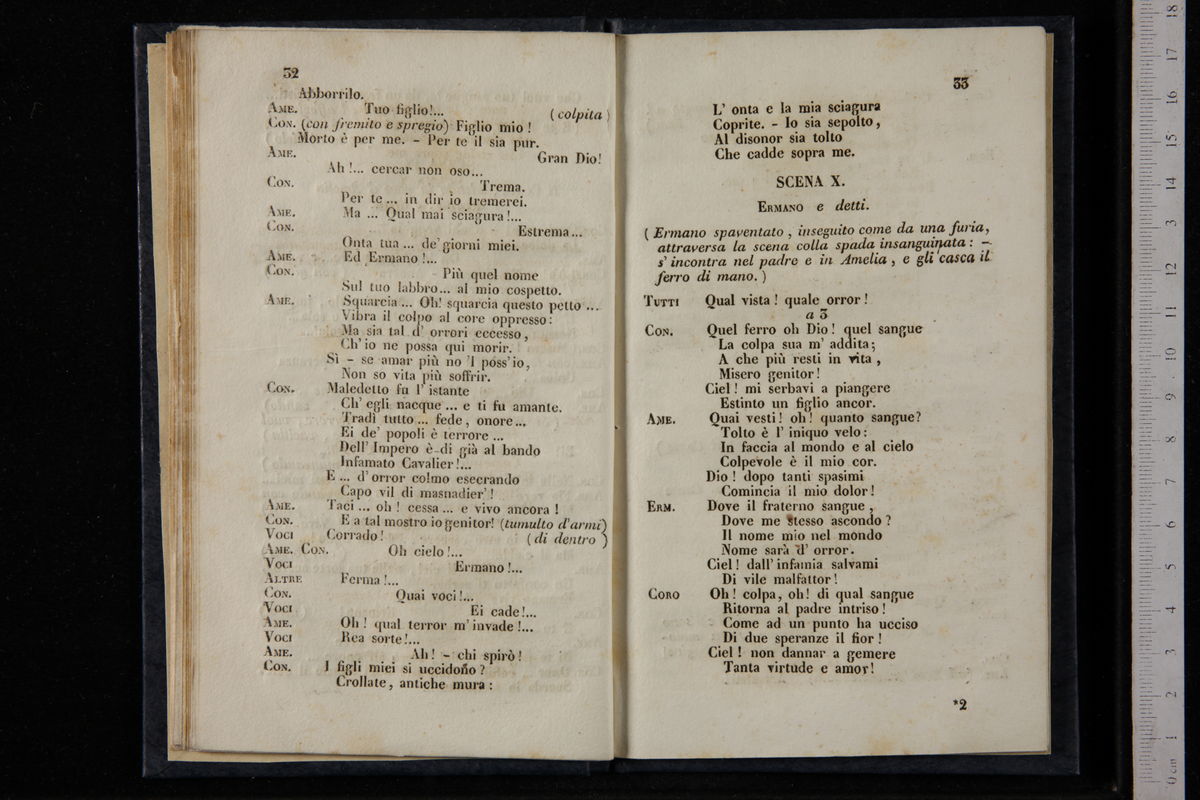 32
Abborrilo.
AME. Tuo figlio!... (colpita)
CON. (con fremito e spregio) Figlio mio !
Morto è per me. - Per te il sia pur.
AME. Gran Dio!
Ah !... cercar non oso...
CON. Trema.
Per te ... in dir io tremerei.
AME. Ma ... Qual mai sciagura !...
CON. Estrema...
Onta tua ... de' giorni miei.
AME. Ed Ermano !...
CON. Più quel nome
Sul tuo labbro... al mio cospetto.
AME. Squarcia ... Oh! squarcia questo petto ...
Vibra il colpo al core oppresso:
Ma sia tal d' orrori eccesso,
Ch' io ne possa qui morir.
Sì - se amar più no 'l poss' io,
Non so vita più soffrir.
CON. Maledetto fu l' istante
Ch' egli nacque ... e ti fu amante.
Tradì tutto ... fede, onore...
Ei de' popoli è terrore ...
Dell' Impero è di già al bando
Infamato Cavalier !...
E ... d' orror colmo esecrando
Capo vil di masnadier' !
AME. Taci ... oh ! cessa ... e vivo ancora !
CON. E a tal mostro io genitor! (tumulto d'armi)
VOCI Corrado ! (di dentro)
AME. CON. Oh cielo !...
VOCI Ermano !...
ALTRE Ferma !...
CON. Quai voci !...
VOCI Ei cade !...
AME. Oh ! qual terror m' invade !...
VOCI Rea sorte !...
AME. Ah ! - chi spirò !
CON. I figli miei si uccidono ?
Crollate, antiche mura :
33
L' onta e la mia sciagura
Coprite. - Io sia sepolto,
Al disonor sia tolto
Che cadde sopra me.
SCENA X.
ERMANO e detti.
( Ermano spaventato , inseguito come da una furia,
attraversa la scena colla spada insanguinata : -
s' incontra nel padre e in Amelia , e gli casca il
ferro di mano. )
TUTTI Qual vista ! quale orror !
a 3
CON. Quel ferro oh Dio ! quel sangue
La colpa sua m' addita;
A che più resti in vita ,
Misero genitor !
Ciel ! mi serbavi a piangere
Estinto un figlio ancor.
AME. Quai vesti ! oh ! quanto sangue?
Tolto è l' iniquo velo :
In faccia al mondo e al cielo
Colpevole è il mio cor.
Dio ! dopo tanti spasimi
Comincia il mio dolor !
ERM. Dove il fraterno sangue ,
Dove me stesso ascondo ?
Il nome mio nel mondo
Nome sarà d' orror.
Ciel ! dall' infamia salvami
Di vile malfattor !
CORO Oh ! colpa, oh! di qual sangue
Ritorna al padre intriso !
Come ad un punto ha ucciso
Di due speranze il fior !
Ciel ! non dannar a gemere
Tanta virtude e amor!
*2
0 cm 1 2 3 4 5 6 7 8 9 10 11 12 13 14 15 16 17 18